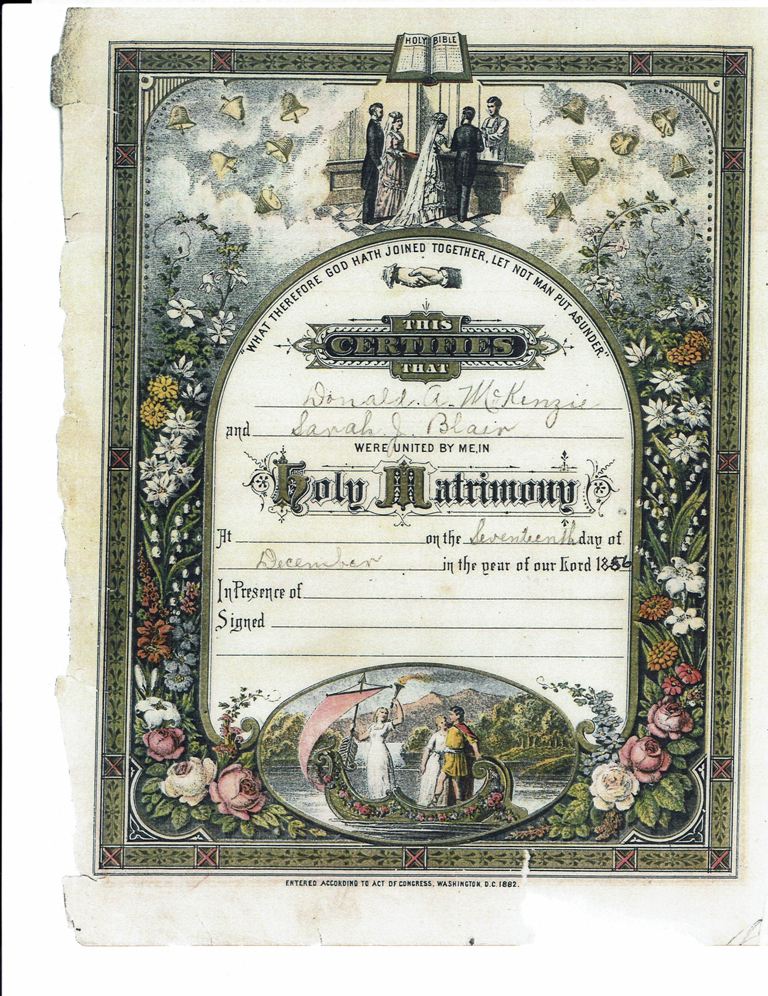 HOLY BIBLE
"WHAT THEREFORE GOD HATH JOINED TOGETHER, LET NOT MAN PUT ASUNDER."
THIS
CERTIFIES
THAT
Donald. A. McKenzie
and Sarah J. Blair
WERE UNITED BY ME, IN
Holy Matrimony
At on the Seventeenth day of
December in the year of our Lord 1856
In Presence of
Signed
ENTERED ACCORDING TO ACT OF CONGRESS, WASHINGTON, D.C. 1882.